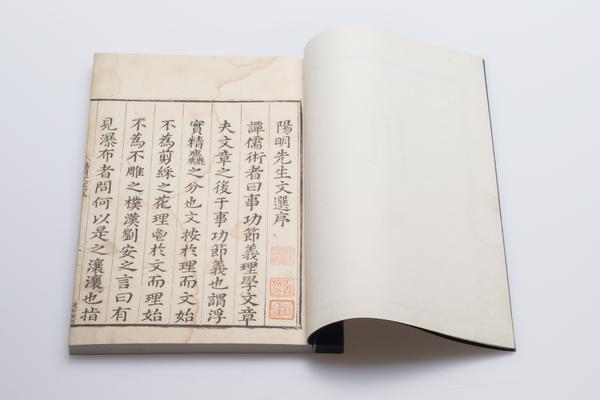 陽明先生文選序
譚儒術者曰事功節義理學文章
夫文章之後于事功節義也謂浮
實精麤之分也文按於理而文始
不為剪綵之花理鬯於文而理始
不為不雕之樸漢劉安之言曰有
見瀑布者問何以是之瀼瀼也指